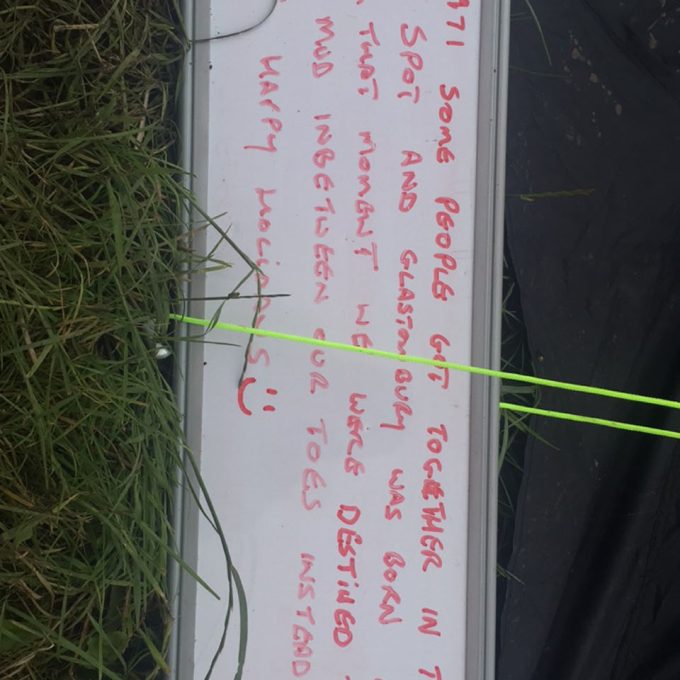 971 SOME PEOPLE GOT TOGETHER IN T
SPOT AND GLASTONBURY WAS BORN
THAT MOMENT WE WERE DESTINED
MUD INBETWEEN OUR TOES INSTEAD
HAPPY HOLIDAYS